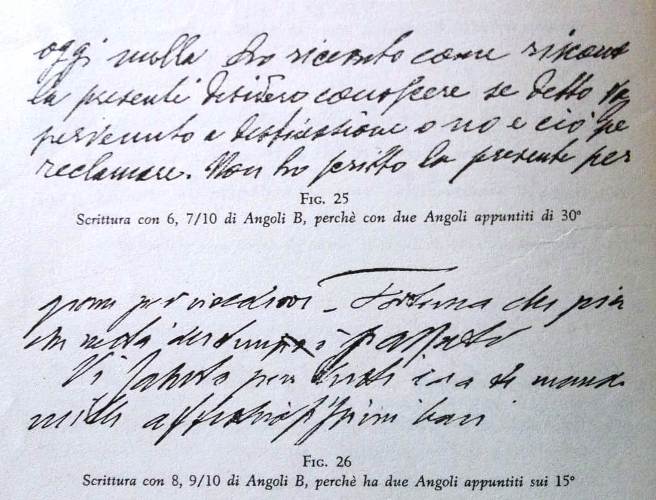 oggi nulla ho ricevuto come
la presente desidero conoscere se detto
pervenuto a destinazione o no e ciò pe
reclamare. Non ho scritto la presente per
FIG. 25
Scrittura con 6, 7/10 di Angoli B, perchè con due Angoli appuntiti di 30°
per Fortuna che più
è passato
Vi saluto
mille affettuosissimi baci
FIG. 26
Scrittura con 8, 9/10 di Angoli B, perchè ha due Angoli appuntiti sui 15°